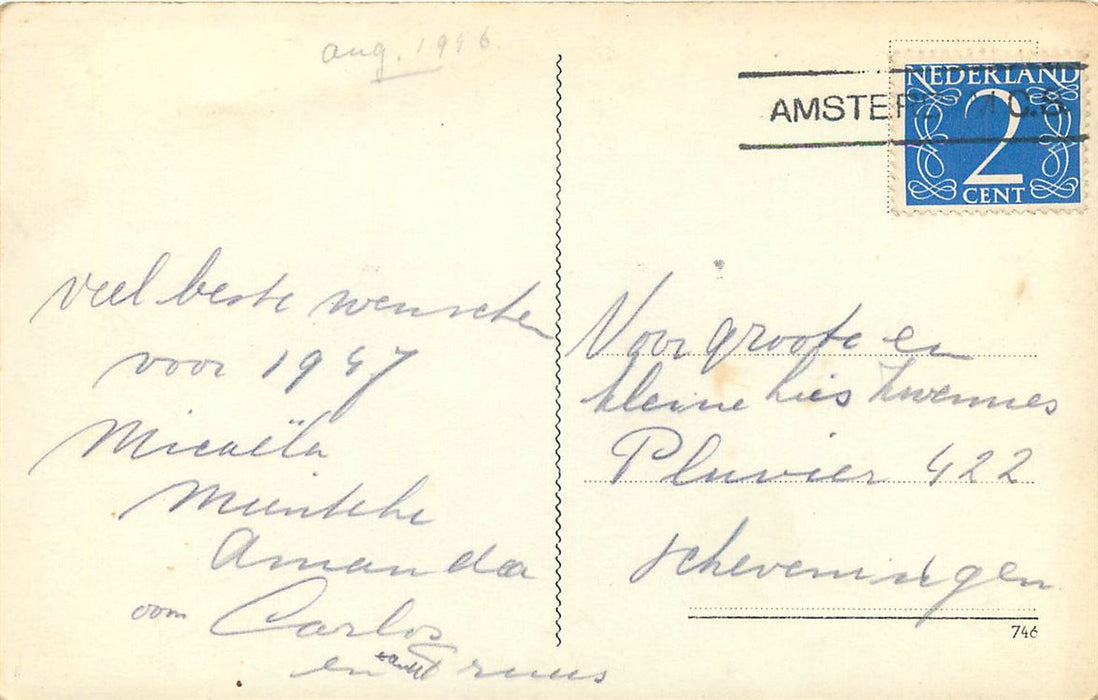 aug. 1946
NEDERLAND
2
CENT
AMSTERDAM C.S.
veel beste wenschen
voor 1947
Micaëla
Amanda
oom Carlos
en tante Truus
Voor groote en
kleine Lies Zwennes
Pluvier 422
Scheveningen
746